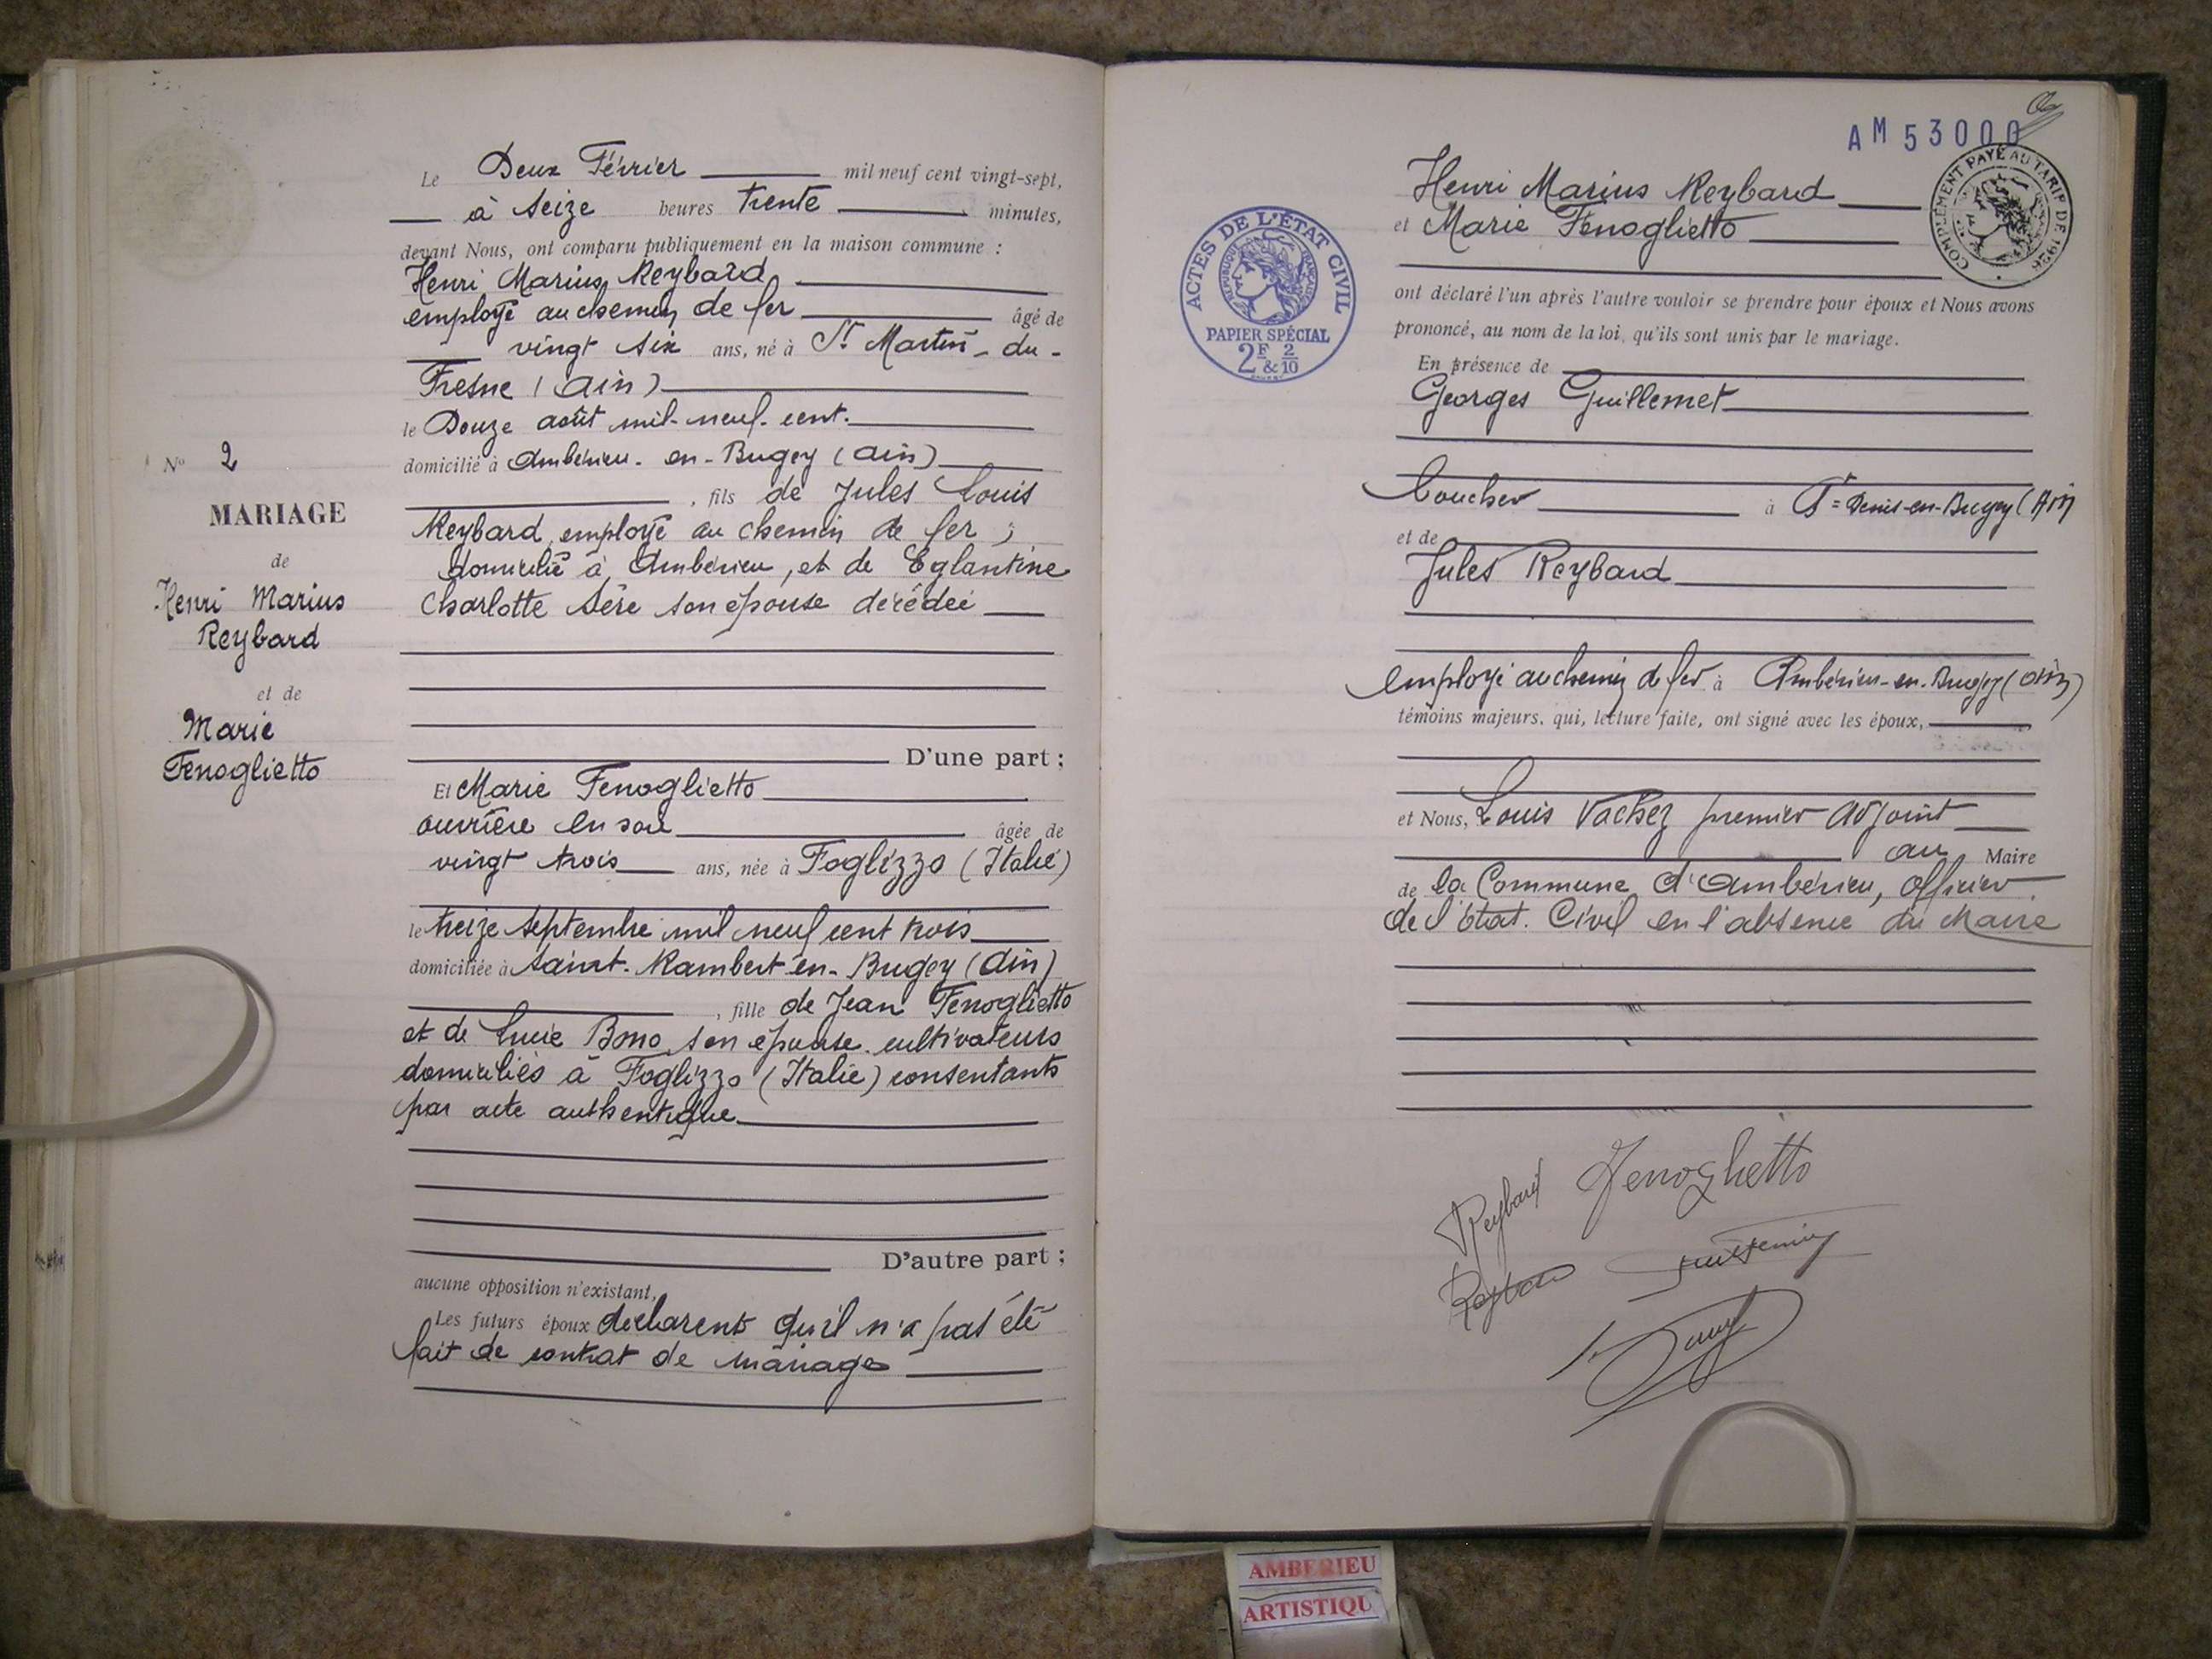 Le Deux Février mil neuf cent vingt-sept,
à seize heures trente minutes,
devant Nous, ont comparu publiquement en la maison commune :
Henri Marius Reybard
employé au chemin de fer âgé de
vingt six ans, né à St Martin-du-
Fresne (Ain)
le Douze août mil-neuf-cent.
domicilié à Ambérieu-en-Bugey (Ain)
, fils de Jules Louis
Reybard, employé au chemin de fer,
domicilié à Ambérieu, et de Eglantine
Charlotte Sère son épouse décédée
D'une part ;
Et Marie Fenoglietto
ouvrière en soie âgée de
vingt trois ans, née à Foglizzo (Italie)
le treize septembre mil neuf cent trois
domiciliée à Saint-Rambert-en-Bugey (Ain)
, fille de Jean Fenoglietto
et de Lucie Bono son épouse cultivateurs
domiciliés à Foglizzo (Italie) consentants
par acte authentique
D'autre part ;
aucune opposition n'existant,
Les futurs époux déclarent qu'il n'a pas été
fait de contrat de mariage
No 2
MARIAGE
de
Henri Marius
Reybard
et de
Marie
Fenoglietto
AM 53000
COMPLÉMENT PAYÉ AU TARIF DE 1926
ACTES DE L'ÉTAT CIVIL
RÉPUBLIQUE FRANÇAISE
PAPIER SPÉCIAL
2F & 2/10
Henri Marius Reybard
et Marie Fenoglietto
ont déclaré l'un après l'autre vouloir se prendre pour époux et Nous avons
prononcé, au nom de la loi, qu'ils sont unis par le mariage.
En présence de
Georges Guillemet
boucher à St=Denis-en-Bugey (Ain)
et de
Jules Reybard
employé au chemin de fer à Ambérieu-en-Bugey (Ain)
témoins majeurs, qui, lecture faite, ont signé avec les époux,
et Nous, Louis Vachez premier adjoint
au Maire
de la Commune d'Ambérieu, officier
de l'état. Civil en l'absence du Maire
Reybard Fenoglietto
Reybard
AMBERIEU
ARTISTIQU